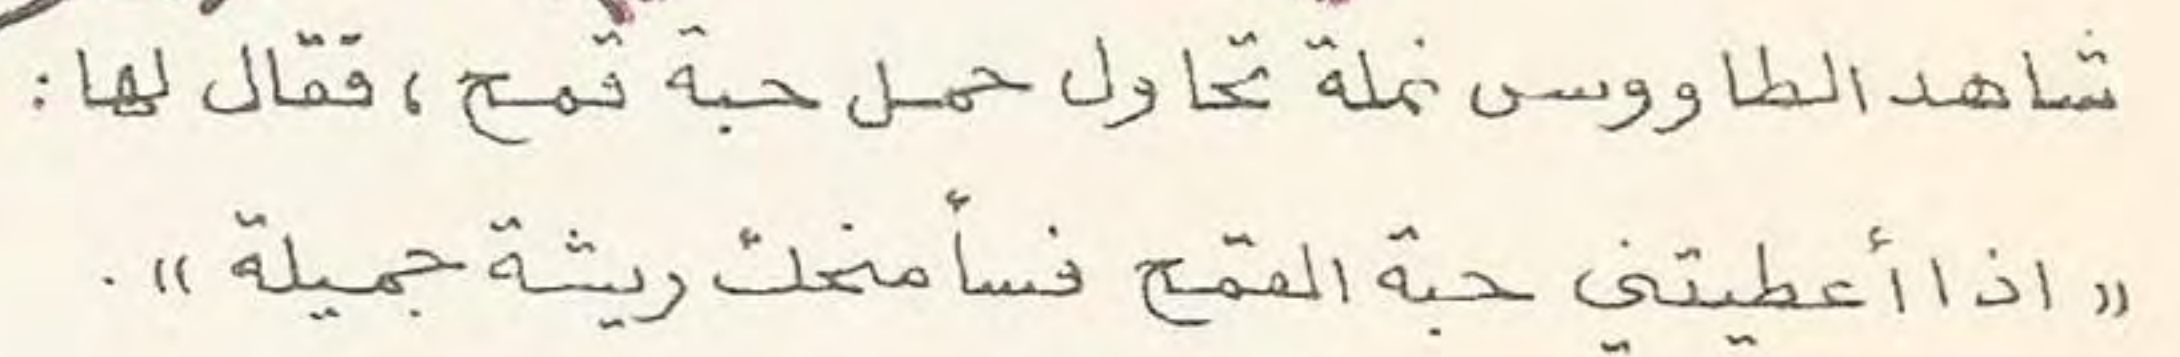 شاهد الطاووس نملة تحاول حمل حبة قمح ، فقال لها :
« اذا أعطيتني حبة القمح فسأمنحك ريشة جميلة » .